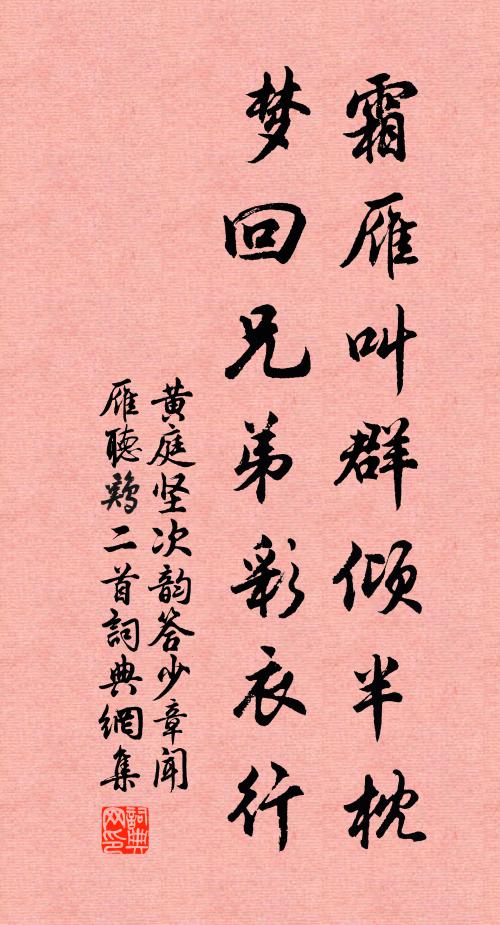 霜雁叫群倾半枕
梦回兄弟彩衣行
黄庭坚次韵答少章闻
雁聴鸡二首詞典網集
詞典
网印